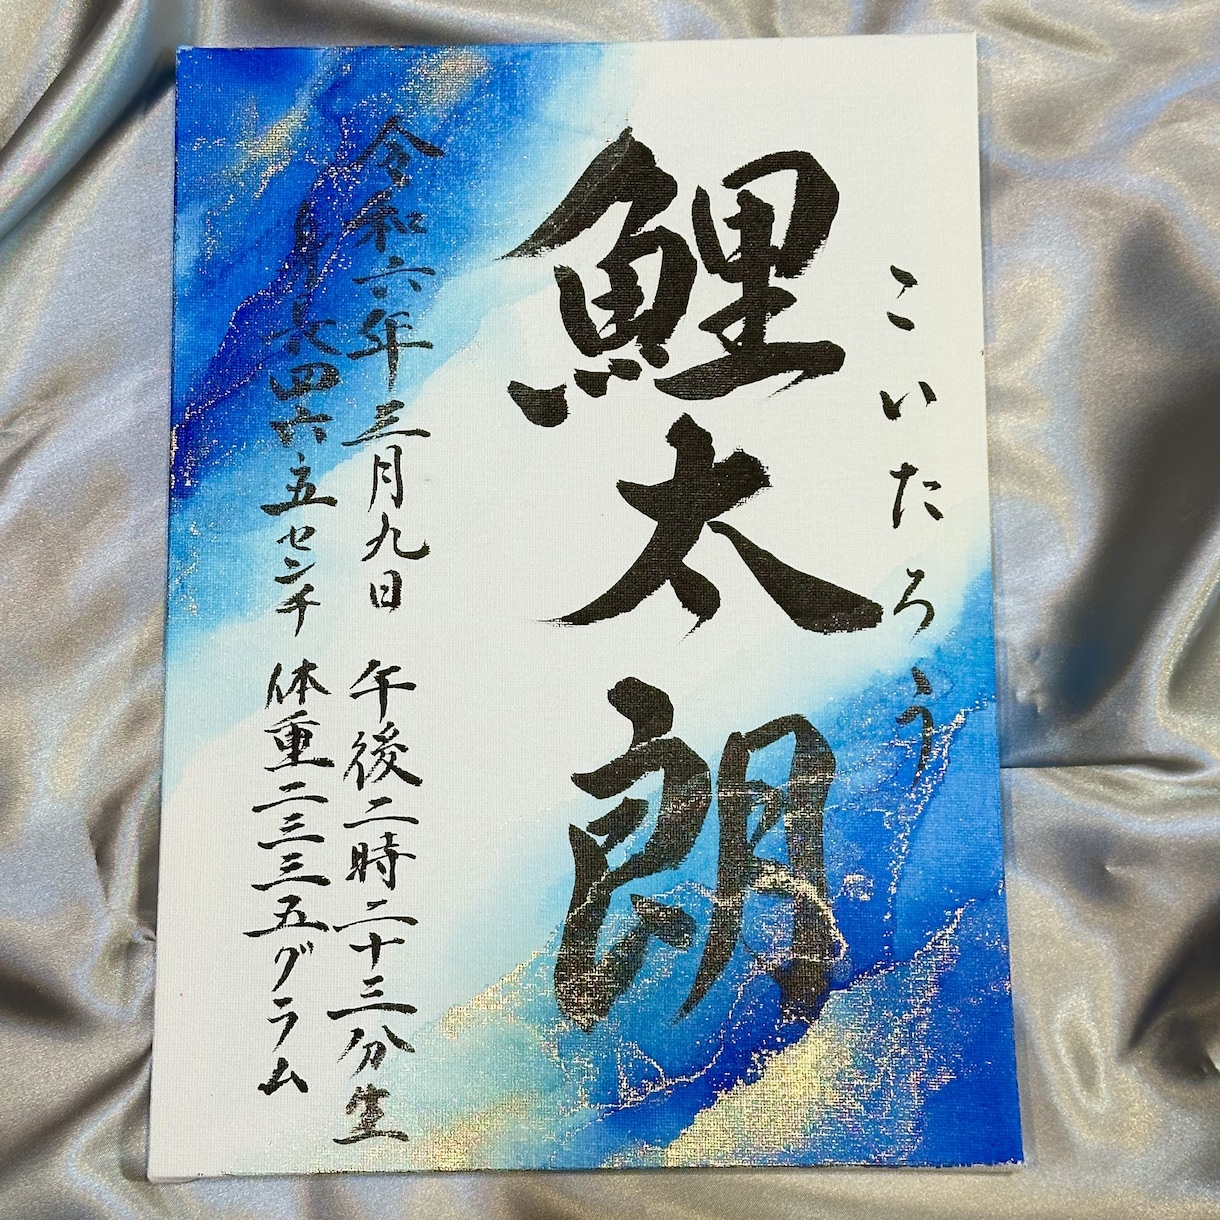 こいたろう
鯉太朗
令和六年三月九日 午後二時二十三分生
身長四六・五センチ 体重二三三五グラム